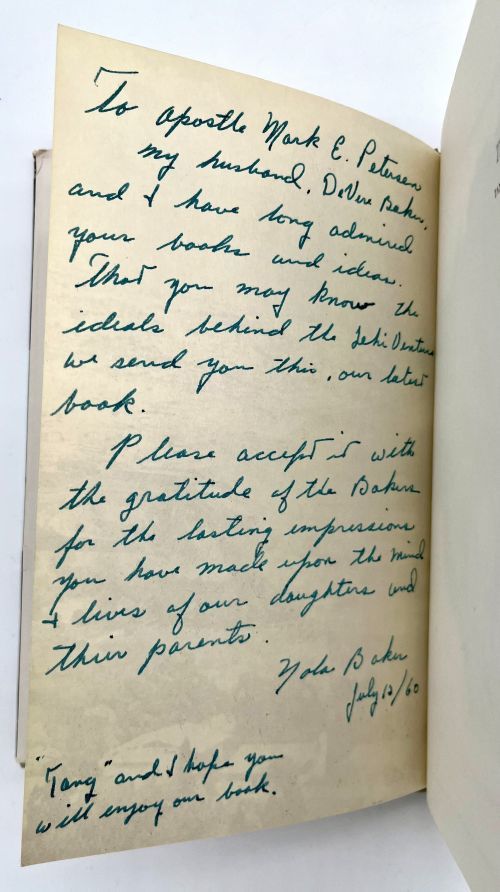 To Apostle Mark E. Petersen
my husband, DeVere Baker,
and I have long admired
your books and ideas.
That you may know the
ideals behind the Lehi Venture
we send you this, our latest
book.
Please accept it with
the gratitude of the Bakers
for the lasting impressions
you have made upon the mind
& lives of our daughters and
their parents.
Nola Baker
July 12/60
"Tang" and I hope you
will enjoy our book.